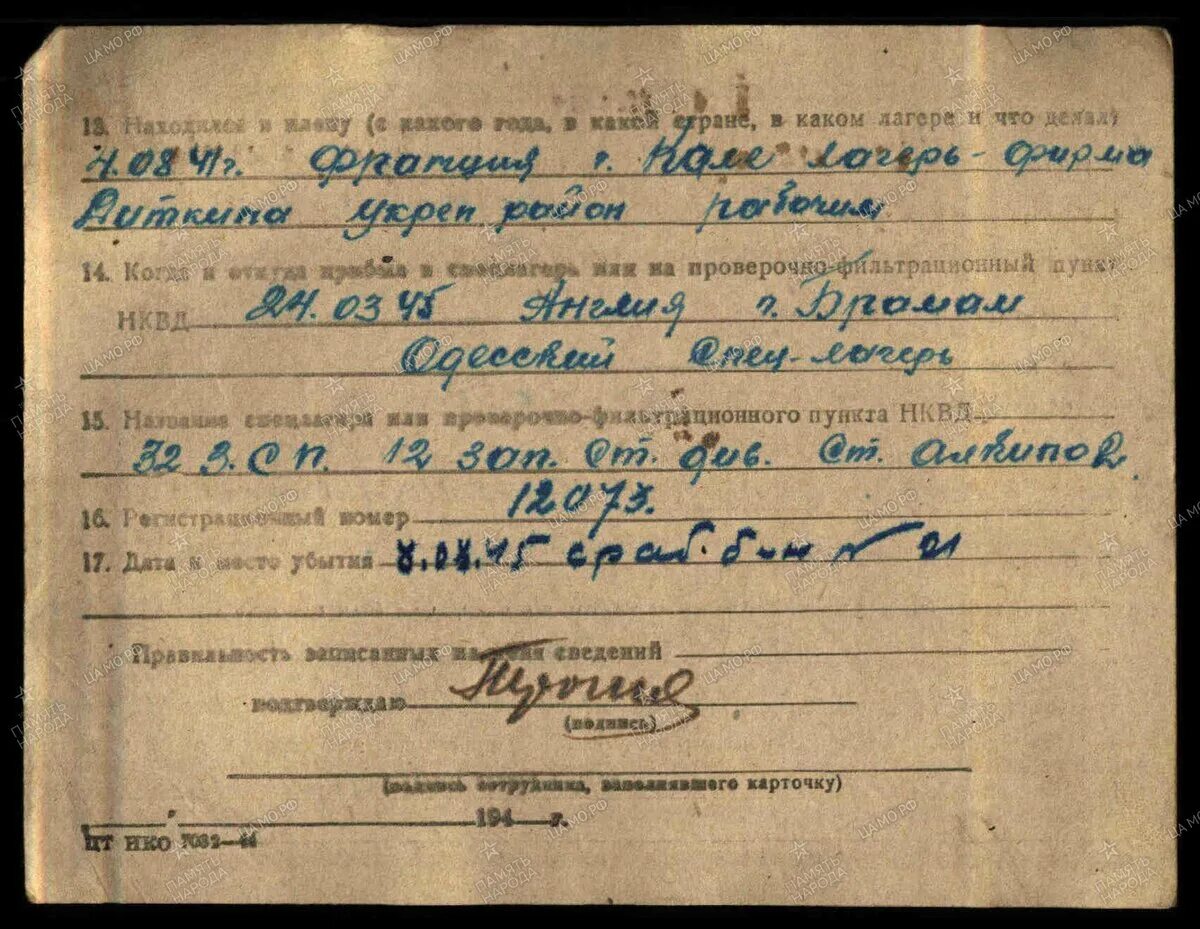 13. Находился в плену (с какого года, в какой стране, в каком лагере и что делал)
4.08 41г. Франция г. Кале лагерь-фирма
Диткина укреп район рабочим
14. Когда и откуда прибыл в спецлагерь или на проверочно-фильтрационный пункт
НКВД 24.03 45 Англия г. Брамам
Одесский Спец-лагерь
15. Название спецлагеря или проверочно-фильтрационного пункта НКВД
32 З.СП. 12 зап. Ст. див. Ст.
16. Регистрационный номер 12073.
17. Дата и место убытия .45 с раб. б-н № 21
Правильность записанных на меня сведений
подтверждаю
(подпись)
(подпись сотрудника, заполнявшего карточку)
" " 194 г.
ЦТ НКО 7032—44
ПАМЯТЬ НАРОДА
ЦА МО РФ